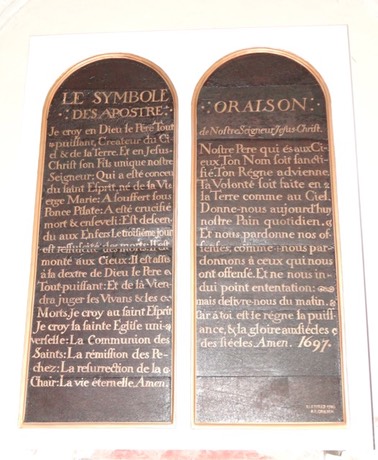 LE SYMBOLE
DES APOSTRE
Je croy en Dieu le Pere Tout
puissant, Createur du Ci
el & de la Terre. Et en Jesus
Christ son Fils unique nostre
Seigneur; Qui a esté conceu
du saint Esprit, né de la Vi
erge Marie; A souffert sous
Ponce Pilate; A esté crucifié
mort & enseveli: Est descen
du aux Enfers Le troisième jour
est ressuscité des morts. Il est
monté aux Cieux: Il est assis
à la dextre de Dieu le Pere
Tout-puissant: Et de là Vien
dra juger les Vivans & les
Morts, je croy au saint Esprit
Je croy la sainte Eglise uni-
verselle: La Communion des
Saints: La rémission des Pe-
chez: La resurrection de la
Chair: La vie éternelle Amen.
:ORAISON:
de Nostre Seigneur Jesus-Christ.
Nostre Pere qui és aux Ci-
eux, Ton Nom soit sancti-
fié, Ton Régne advienne
Ta Volonté soit faite en
la Terre comme au Ciel.
Donne-nous aujourd'huy
nostre Pain quotidien,
Et nous pardonne nos of-
fenses, comme nous par-
donnons à ceux qui nous
ont offensé. Et ne nous in-
dui point en tentation:
mais delivre-nous du malin.
Car à toi est le régne la puiss-
ance, & la gloire aus siécles
des siécles Amen. 1697.